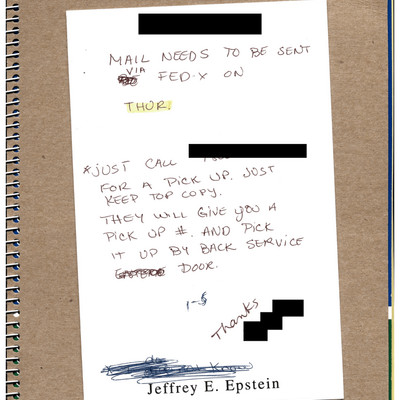 MAIL NEEDS TO BE SENT
VIA
FED-X ON
THUR.
*JUST CALL
FOR A PICK UP. JUST
KEEP TOP COPY.
THEY WILL GIVE YOU A
PICK UP #. AND PICK
IT UP BY BACK SERVICE
DOOR.
Thanks
Jeffrey E. Epstein